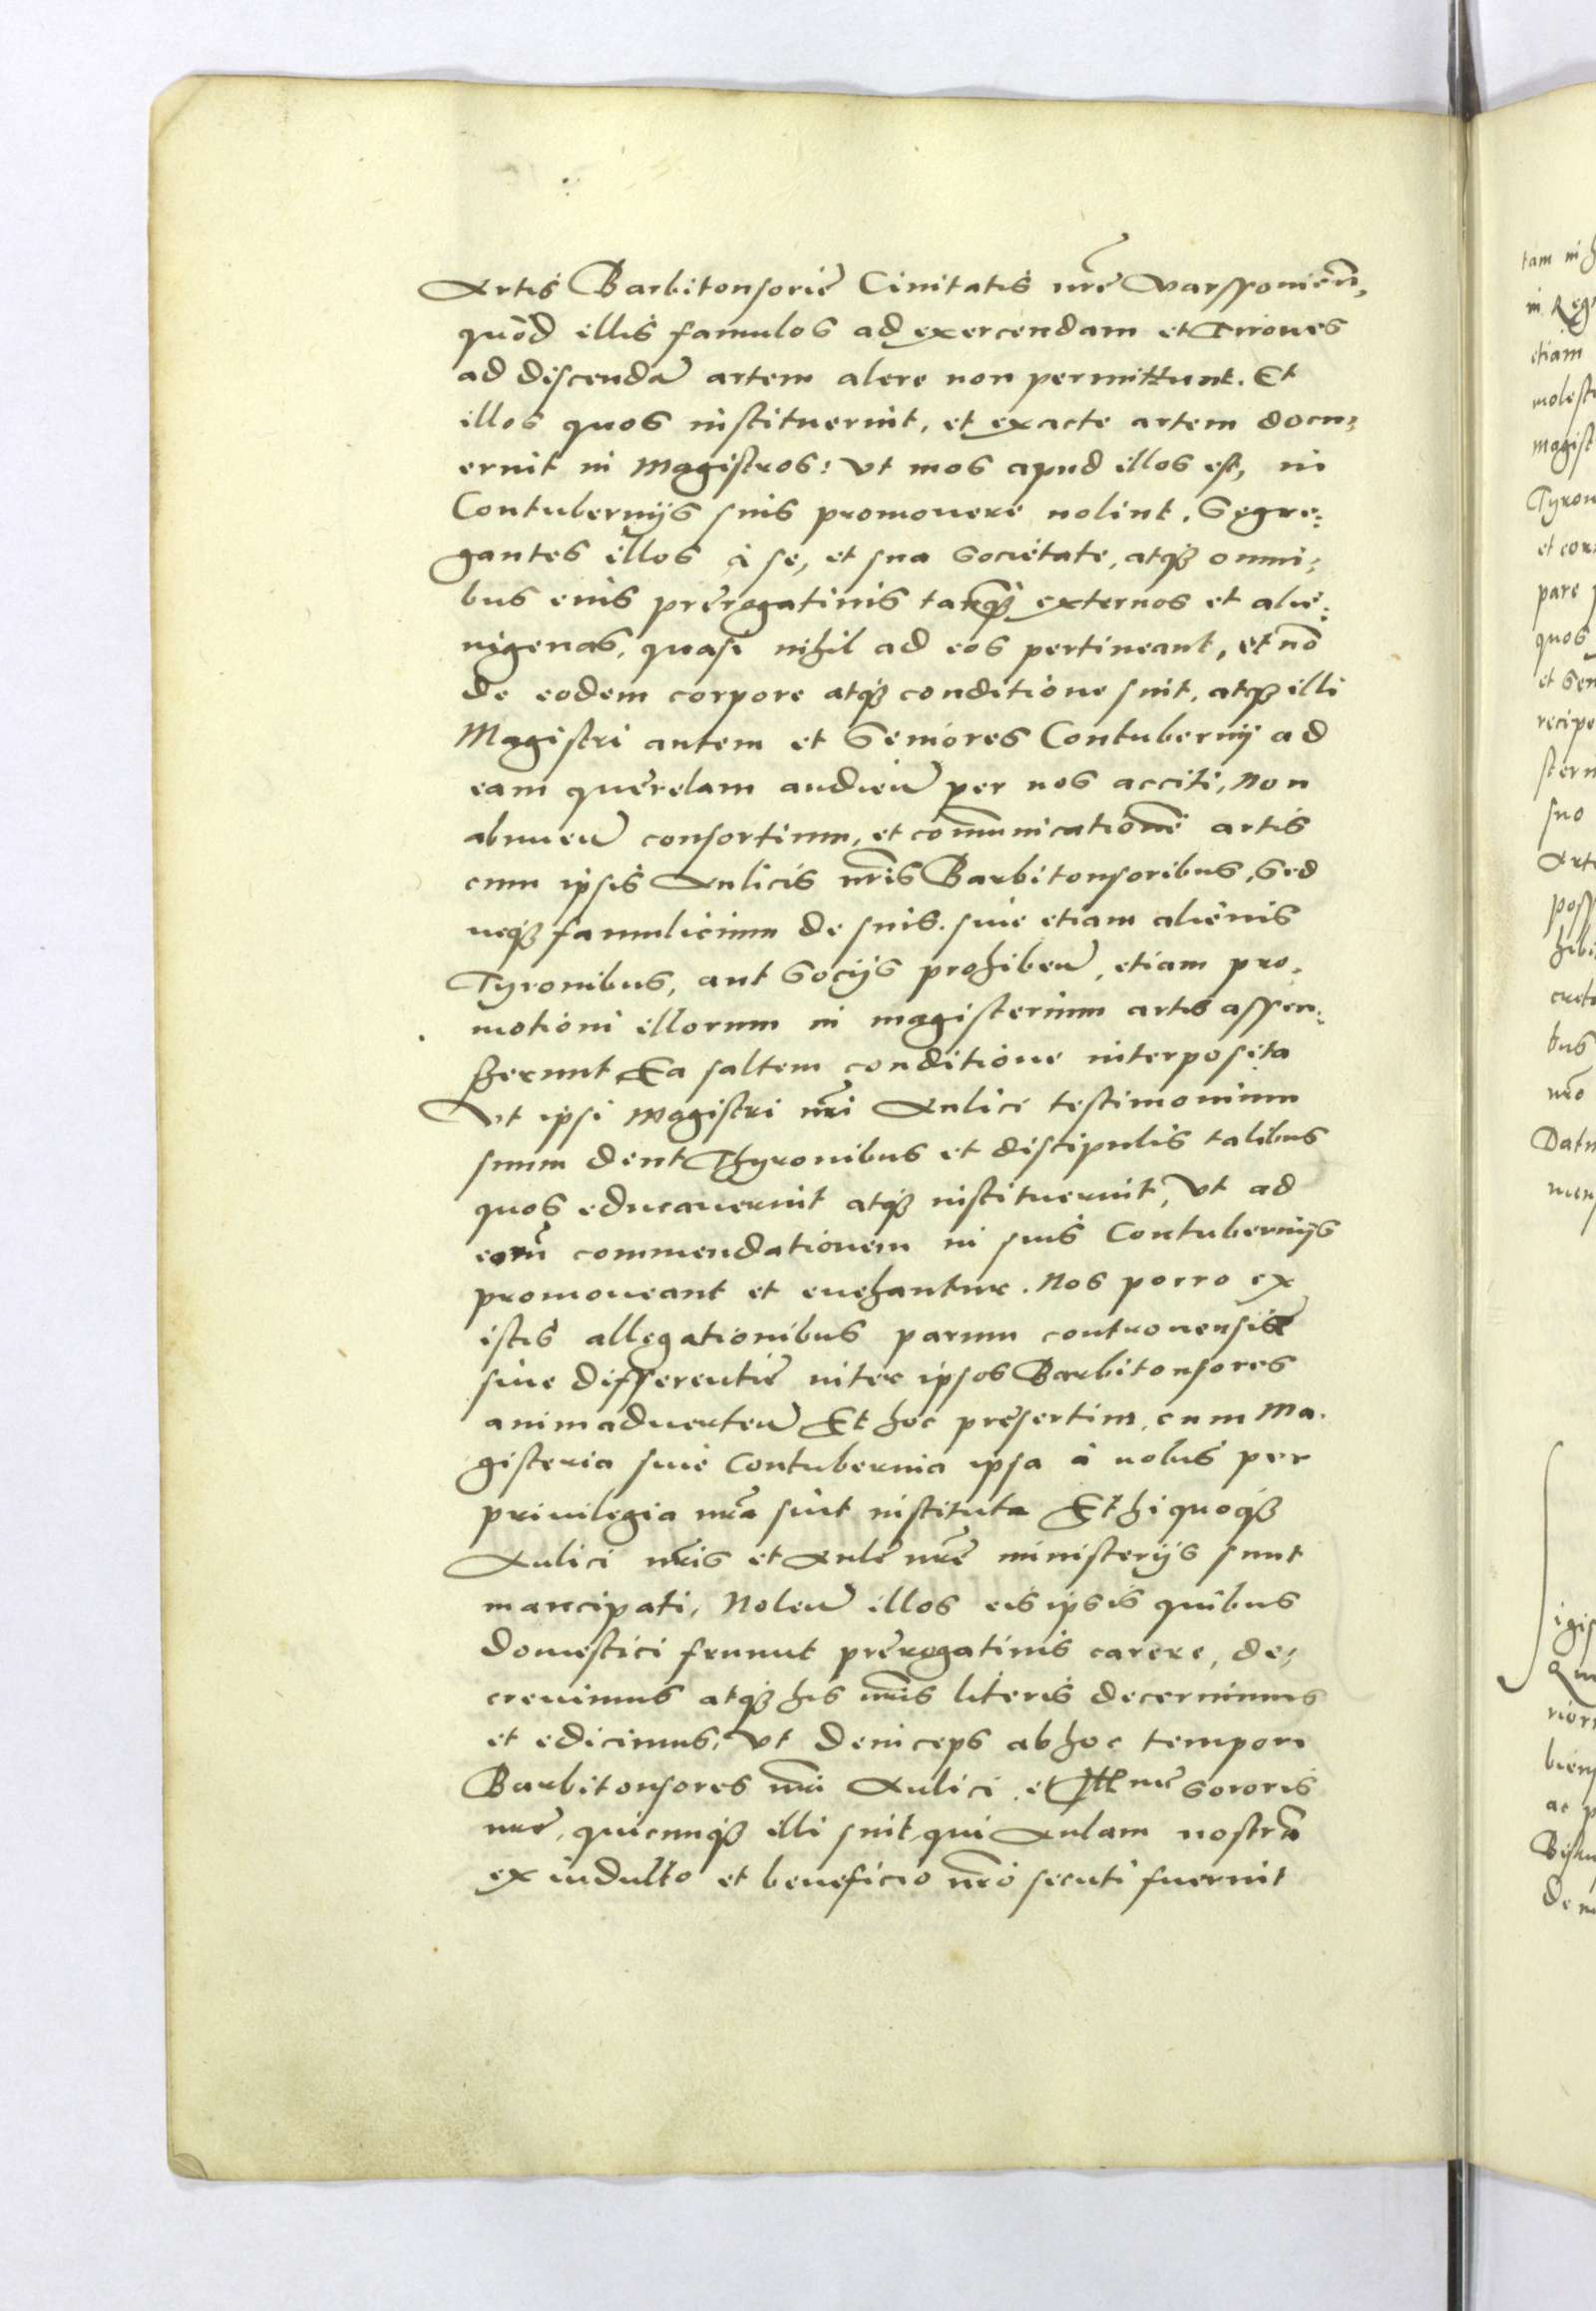 Artis Barbitonsorie Ciuitatis nr̃e Varssouien̄,
quòd illis famulos ad exercendam et Tirones
ad discendā artem alere non permittunt. Et
illos quos instituerint, et exacte artem docu,
erint in magistros: Vt mos apud illos est, in
Contubernijs suis promouere nolint. Segre,
gantes illos à se, et sua societate, atq3 omni,
bus eius prerogatiuis tanq̃3 externos et alie,
nigenas, quasi nihil ad eos pertineant, et nō
de eodem corpore atq3 conditione sint, atq3 illi
Magistri autem et Seniores Contubernij ad
eam querelam audien̄ per nos acciti, non
abnuen̄ consortium, et cōmunicationē artis
cum ipsis Aulicis nr̃is Barbitonsoribus, Sed
neq3 famulicium de suis. siue etiam alienis
Tyronibus, aut Socijs prohiben̄, etiam pro,
motioni illorum in magisterium artis assen,
serunt Ea saltem conditione interposita
Vt ipsi magistri nr̃i Aulici testimonium
suum dent Thyronibus et discipulis talibus
quos educauerint atq3 instituerint, Vt ad
eorū commendationem in suis Contubernijs
promoueant et euehantur. Nos porro ex
istis allegationibus parum controuersie
siue differentie inter ipsos Barbitonsores
animaduerten̄ Et hoc presertim, cum Ma,
gisteria siue Contubernia ipsa à nobis per
priuilegia nr̃a sint instituta Et hi quoq3
Aulici nr̃is et Aule nr̃e ministerijs sunt
mancipati, Nolen̄ illos eis ipsis quibus
domestici fruunt prerogatiuis carere, de,
creuimus atq3 his nr̃is literis decernimus
et edicimus, Vt deinceps ab hoc tempori
Barbitonsores nr̃i Aulici et Ill me Sororis
nr̃e, quicunq3 illi sint, qui Aulam nostrā
ex indulto et beneficio nr̃o secuti fuerint
tam in
in Reg
etiam
molest
magist
Tyron
et con
pare
quos
et Sen
recipe
stern
suo
Arti
poss
hibi
creto
bus
nr̃o
Datu
men
igis
Qu
rior
bien
ac p
Bisu
de